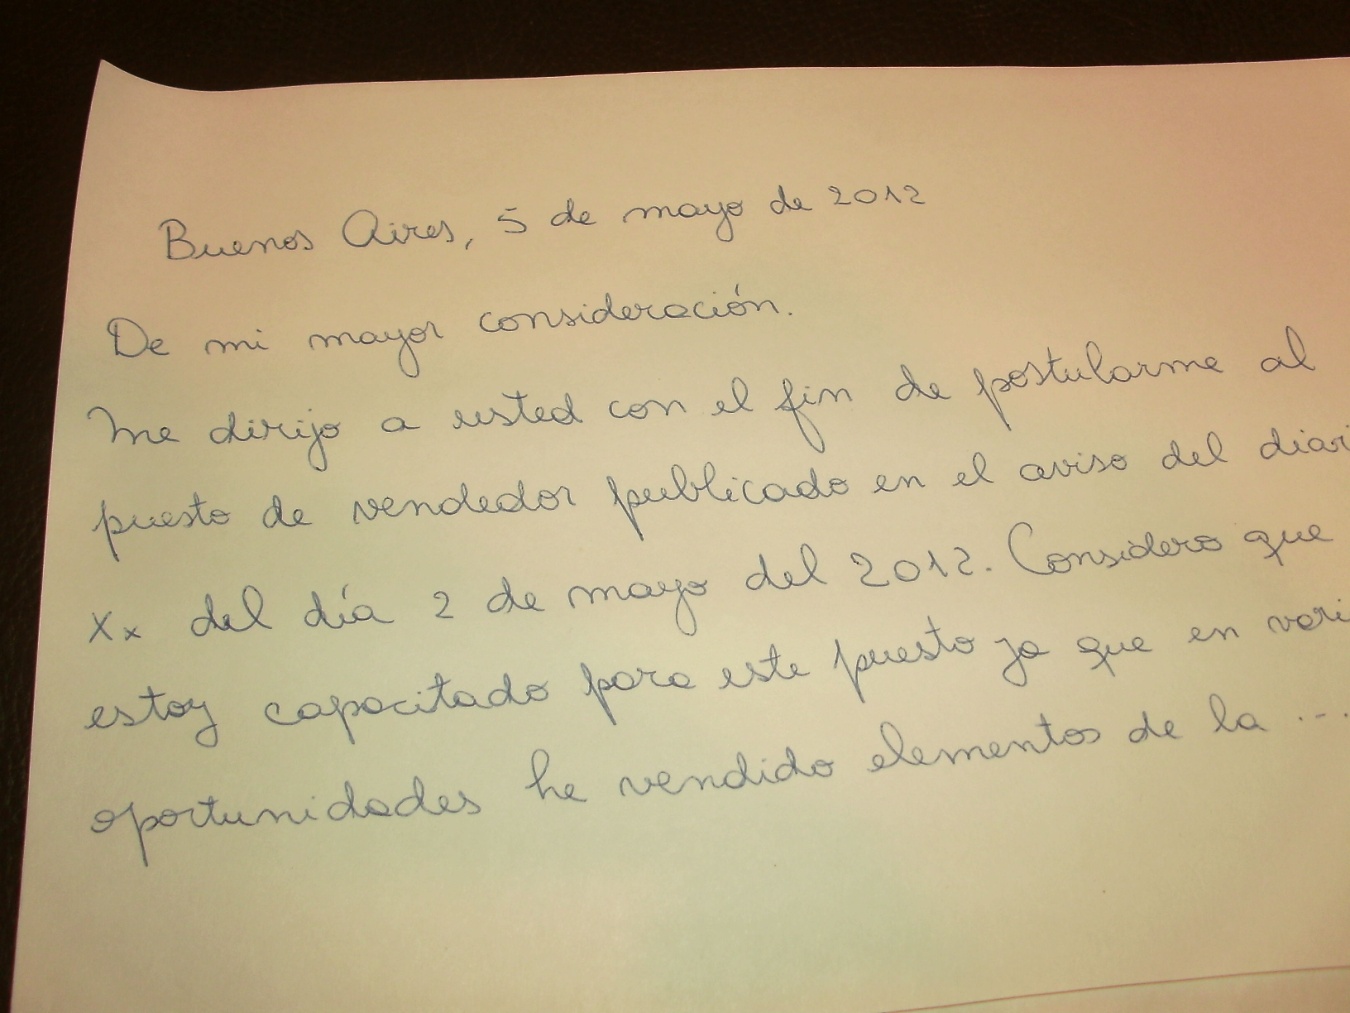 Buenos Aires, 5 de mayo de 2012
De mi mayor consideración.
Me dirijo a usted con el fin de postularme al
puesto de vendedor publicado en el aviso del diari
Xx del día 2 de mayo del 2012. Considero que
estoy capacitado para este puesto ya que en vari
oportunidades he vendido elementos de la ...